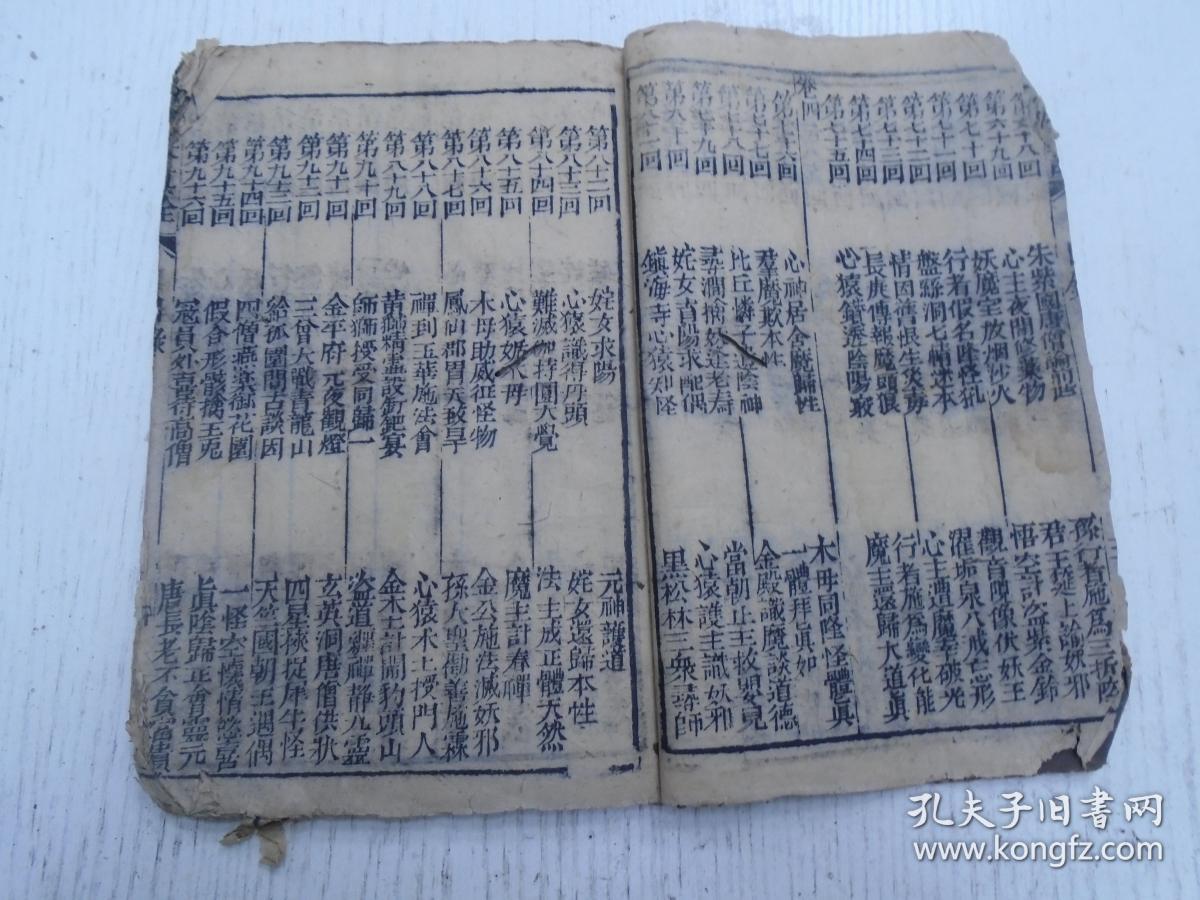 第六十八回　朱紫國唐僧論前世　孫行者施為三折肱
第六十九回　心主夜間修藥物　君王筵上論妖邪
第七十回　妖魔寶放烟沙火　悟空計盗紫金鈴
第七十一回　行者假名降怪犼　觀音現像伏妖王
第七十二回　盤絲洞七情迷本　濯垢泉八戒忘形
第七十三回　情因舊恨生災毒　心主遭魔幸破光
第七十四回　長庚傳報魔頭狠　行者施為變化能
第七十五回　心猿鑽透陰陽竅　魔主還歸大道真
卷四
第七十六回　心神居舍魔歸性　木母同降怪體真
第七十七回　羣魔欺本性　一體拜真如
第七十八回　比丘憐子遣陰神　金殿識魔談道德
第七十九回　尋洞擒妖逢老壽　當朝正主救嬰兒
第八十回　姹女育陽求配偶　心猿護主識妖邪
第八十一回　鎮海寺心猿知怪　黑松林三衆尋師
第八十二回　姹女求陽　元神護道
第八十三回　心猿識得丹頭　姹女還歸本性
第八十四回　難滅伽持圓大覺　法主成正體天然
第八十五回　心猿妬木母　魔主計吞禪
第八十六回　木母助威征怪物　金公施法滅妖邪
第八十七回　鳳仙郡冒天致旱　孫大聖勸善施霖
第八十八回　禪到玉華施法會　心猿木土授門人
第八十九回　黃獅精虛設釘鈀宴　金木土計鬧豹頭山
第九十回　師獅授受同歸一　盜道纏禪靜九靈
第九十一回　金平府元夜觀燈　玄英洞唐僧供狀
第九十二回　三僧大戰青龍山　四星挾捉犀牛怪
第九十三回　給孤園問古談因　天竺國朝王遇偶
第九十四回　四僧燕樂御花園　一怪空懷情慾喜
第九十五回　假合形骸擒玉兎　真陰歸正會靈元
第九十六回　寇員外喜待高僧　唐長老不貪富貴
孔夫子旧书网
www.kongfz.com